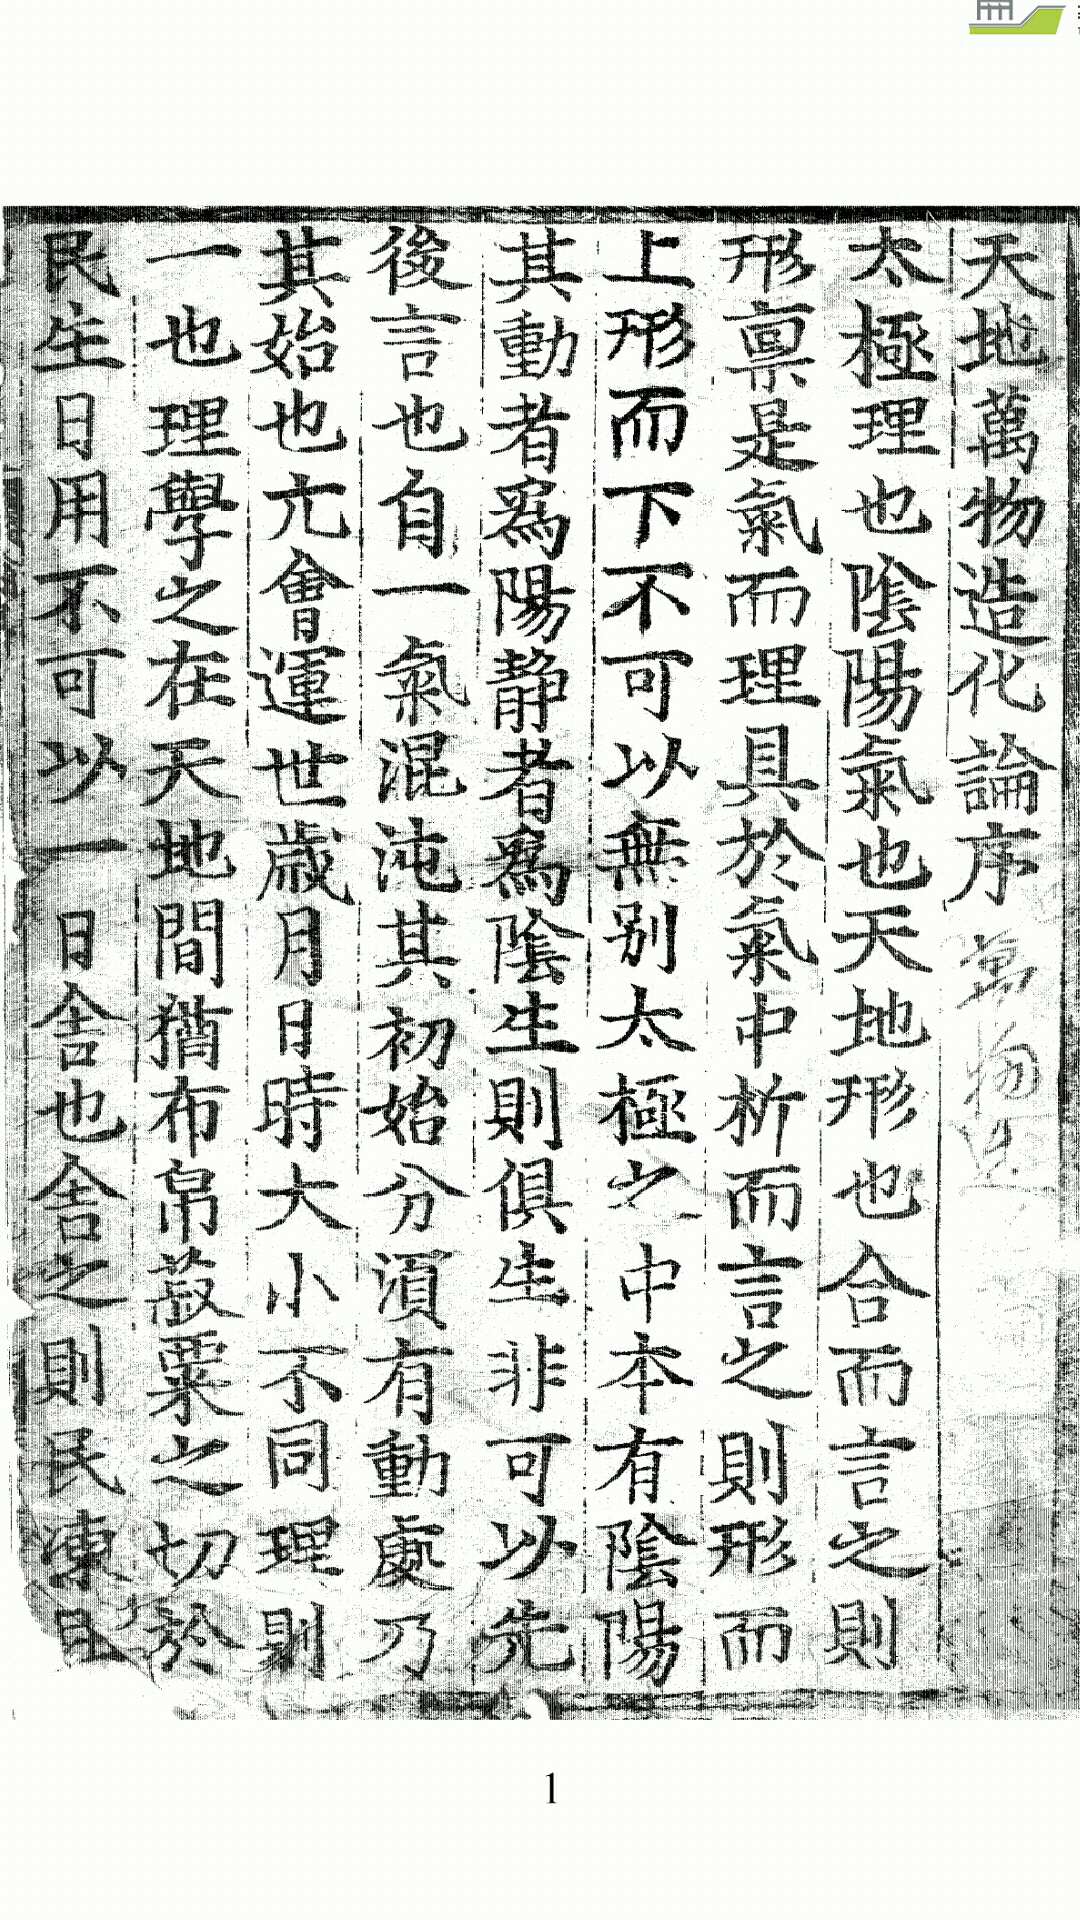 天地萬物造化論序
太極理也陰陽氣也天地形也合而言之則
形禀是氣而理具於氣中析而言之則形而
上形而下不可以無别太極之中本有陰陽
其動者爲陽静者爲陰生則俱生非可以先
後言也自一氣混沌其初始分湏有動處乃
其始也亢會運世歲月日時大小不同理則
一也理學之在天地間猶布帛菽粟之切於
民生日用不可以一日舍也舍之則民凍
1